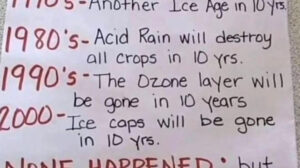 1970's - Another Ice Age in 10 yrs.
1980's - Acid Rain will destroy
all crops in 10 yrs.
1990's - The Ozone layer will
be gone in 10 years
2000 - Ice caps will be gone
in 10 yrs.
NONE HAPPENED; but